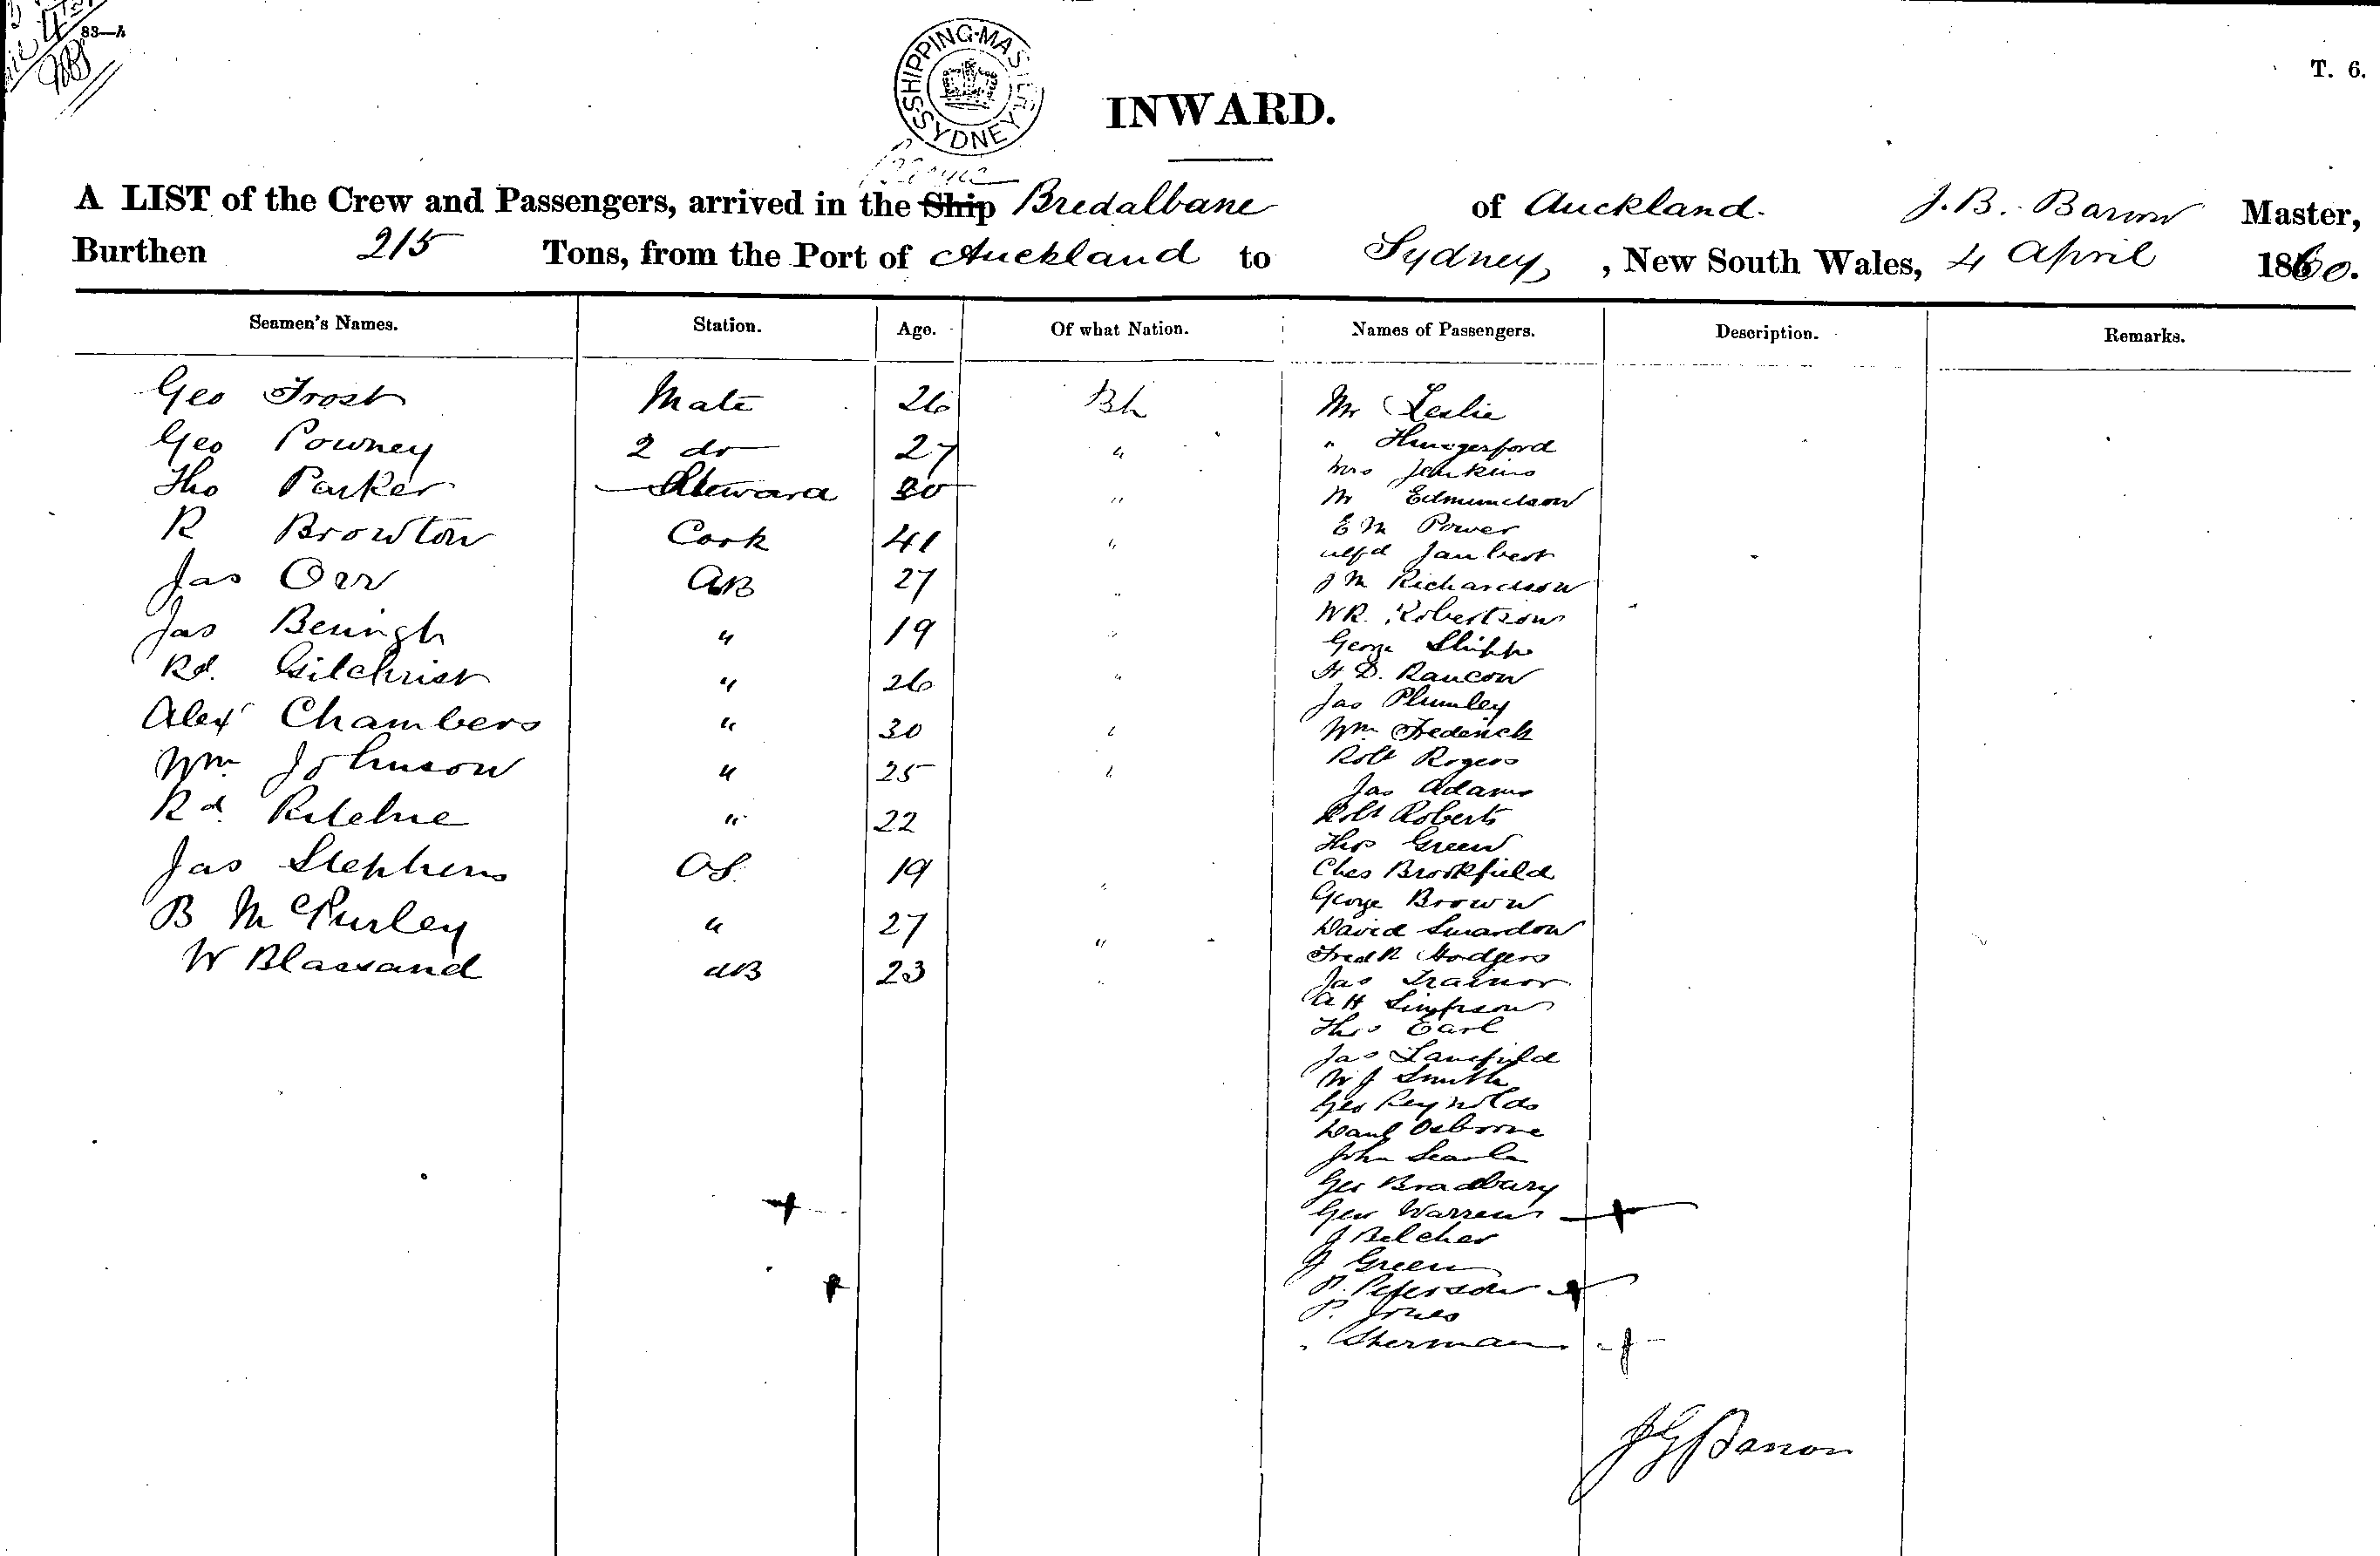 83—A
SHIPPING·MASTER SYDNEY
T. 6.
INWARD.
A LIST of the Crew and Passengers, arrived in the Ship Bredalbane of Auckland. J. B. Barron Master,
Burthen 215 Tons, from the Port of Auckland to Sydney, , New South Wales, 4 April 1860.
Seamen's Names. Station. Age. Of what Nation. Names of Passengers. Description. Remarks.
Geo Frost Mate 26 Bh Mr Leslie
Geo Powney 2 do 27 " " Hungerford
Mrs Jenkins
Tho Parker Steward 30 " Mr Edmundson
R Browton Cook 41 " E M Power
Alfd Jaubert
Jas Orr AB 27 " J M Richardson
W R. Robertson
Jas Beningh " 19 " George Shipp
Rd. Gilchrist " 26 " H D. Rancow
Jas Plumley
Alexr Chambers " 30 " Wm Frederick
Robt Rogers
Wm Johnson " 25 " Jas Adams
Rd Ritchie " 22 Robt Roberts
Thos Green
Jas Stephens OS. 19 " Chas Brookfield
George Brown
B McPurley " 27 " David Swardon
Fredk Hodgers
W Blassand AB 23 " Jas Trainor
A H Simpson
Thos Earl
Jas Lanefield
W J Smith
Geo Reynolds
Danl Osborne
John Searle
Geo Bradbury
Geo Warren
J Belcher
J Green
P. Peterson
P. Jones
" Sherman
J G Barron